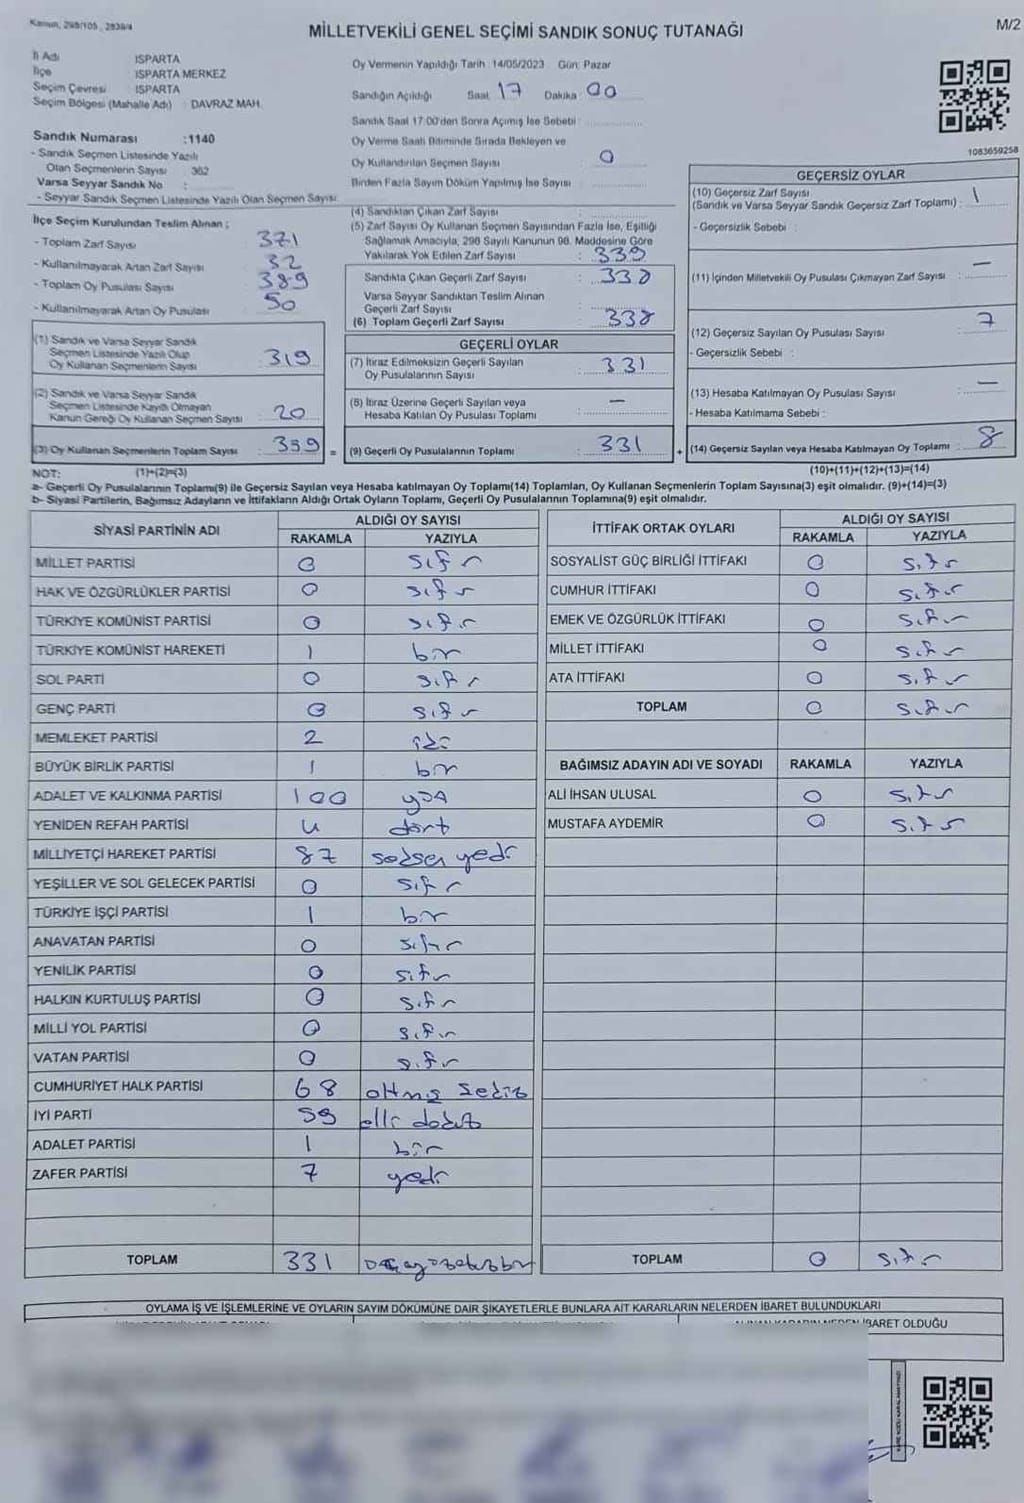 Kanun, 298/105, 2839/4
MİLLETVEKİLİ GENEL SEÇİMİ SANDIK SONUÇ TUTANAĞI
M/2
İl Adı : ISPARTA
İlçe : ISPARTA MERKEZ
Seçim Çevresi : ISPARTA
Seçim Bölgesi (Mahalle Adı) : DAVRAZ MAH.
Sandık Numarası :1140
- Sandık Seçmen Listesinde Yazılı
Olan Seçmenlerin Sayısı : 362
Varsa Seyyar Sandık No :
- Seyyar Sandık Seçmen Listesinde Yazılı Olan Seçmen Sayısı:
İlçe Seçim Kurulundan Teslim Alınan :
- Toplam Zarf Sayısı : 371
- Kullanılmayarak Artan Zarf Sayısı : 32
- Toplam Oy Pusulası Sayısı : 389
- Kullanılmayarak Artan Oy Pusulası : 50
(1) Sandık ve Varsa Seyyar Sandık
Seçmen Listesinde Yazılı Olup
Oy Kullanan Seçmenlerin Sayısı : 319
(2) Sandık ve Varsa Seyyar Sandık
Seçmen Listesinde Kayıtlı Olmayan
Kanun Gereği Oy Kullanan Seçmen Sayısı : 20
(3) Oy Kullanan Seçmenlerin Toplam Sayısı : 339 =
Oy Vermenin Yapıldığı Tarih :14/05/2023 Gün: Pazar
Sandığın Açıldığı Saat: 17 Dakika : 00
Sandık Saat 17.00'den Sonra Açımış İse Sebebi :
Oy Verme Saati Bitiminde Sırada Bekleyen ve
Oy Kullandırılan Seçmen Sayısı : 0
Birden Fazla Sayım Döküm Yapılmış İse Sayısı :
(4) Sandıktan Çıkan Zarf Sayısı :
(5) Zarf Sayısı Oy Kullanan Seçmen Sayısından Fazla İse, Eşitliği
Sağlamak Amacıyla, 298 Sayılı Kanunun 98. Maddesine Göre
Yakılarak Yok Edilen Zarf Sayısı : 339
Sandıkta Çıkan Geçerli Zarf Sayısı : 338
Varsa Seyyar Sandıktan Teslim Alınan
Geçerli Zarf Sayısı :
(6) Toplam Geçerli Zarf Sayısı : 338
GEÇERLİ OYLAR
(7) İtiraz Edilmeksizin Geçerli Sayılan
Oy Pusulalarının Sayısı : 331
(8) İtiraz Üzerine Geçerli Sayılan veya
Hesaba Katılan Oy Pusulası Toplamı : —
(9) Geçerli Oy Pusulalarının Toplamı : 331 +
1083659258
GEÇERSİZ OYLAR
(10) Geçersiz Zarf Sayısı
(Sandık ve Varsa Seyyar Sandık Geçersiz Zarf Toplamı) : 1
- Geçersizlik Sebebi :
(11) İçinden Milletvekili Oy Pusulası Çıkmayan Zarf Sayısı : —
(12) Geçersiz Sayılan Oy Pusulası Sayısı : 7
- Geçersizlik Sebebi :
(13) Hesaba Katılmayan Oy Pusulası Sayısı : —
- Hesaba Katılmama Sebebi :
(14) Geçersiz Sayılan veya Hesaba Katılmayan Oy Toplamı : 8
NOT: (1)+(2)=(3) (10)+(11)+(12)+(13)=(14)
a- Geçerli Oy Pusulalarının Toplamı(9) ile Geçersiz Sayılan veya Hesaba katılmayan Oy Toplamı(14) Toplamları, Oy Kullanan Seçmenlerin Toplam Sayısına(3) eşit olmalıdır. (9)+(14)=(3)
b- Siyasi Partilerin, Bağımsız Adayların ve İttifakların Aldığı Ortak Oyların Toplamı, Geçerli Oy Pusulalarının Toplamına(9) eşit olmalıdır.
SİYASİ PARTİNİN ADI ALDIĞI OY SAYISI
RAKAMLA YAZIYLA
MİLLET PARTİSİ 0 sıfır
HAK VE ÖZGÜRLÜKLER PARTİSİ 0 sıfır
TÜRKİYE KOMÜNİST PARTİSİ 0 sıfır
TÜRKİYE KOMÜNİST HAREKETİ 1 bir
SOL PARTİ 0 sıfır
GENÇ PARTİ 0 sıfır
MEMLEKET PARTİSİ 2 iki
BÜYÜK BİRLİK PARTİSİ 1 bir
ADALET VE KALKINMA PARTİSİ 100 yüz
YENİDEN REFAH PARTİSİ 4 dört
MİLLİYETÇİ HAREKET PARTİSİ 87 seksen yedi
YEŞİLLER VE SOL GELECEK PARTİSİ 0 sıfır
TÜRKİYE İŞÇİ PARTİSİ 1 bir
ANAVATAN PARTİSİ 0 sıfır
YENİLİK PARTİSİ 0 sıfır
HALKIN KURTULUŞ PARTİSİ 0 sıfır
MİLLİ YOL PARTİSİ 0 sıfır
VATAN PARTİSİ 0 sıfır
CUMHURİYET HALK PARTİSİ 68 altmış sekiz
İYİ PARTİ 59 elli dokuz
ADALET PARTİSİ 1 bir
ZAFER PARTİSİ 7 yedi
TOPLAM 331 üçyüzotuzbir
İTTİFAK ORTAK OYLARI ALDIĞI OY SAYISI
RAKAMLA YAZIYLA
SOSYALİST GÜÇ BİRLİĞİ İTTİFAKI 0 sıfır
CUMHUR İTTİFAKI 0 sıfır
EMEK VE ÖZGÜRLÜK İTTİFAKI 0 sıfır
MİLLET İTTİFAKI 0 sıfır
ATA İTTİFAKI 0 sıfır
TOPLAM 0 sıfır
BAĞIMSIZ ADAYIN ADI VE SOYADI RAKAMLA YAZIYLA
ALİ İHSAN ULUSAL 0 sıfır
MUSTAFA AYDEMİR 0 sıfır
TOPLAM 0 sıfır
OYLAMA İŞ VE İŞLEMLERİNE VE OYLARIN SAYIM DÖKÜMÜNE DAİR ŞİKAYETLERLE BUNLARA AİT KARARLARIN NELERDEN İBARET BULUNDUKLARI
İBARET OLDUĞU